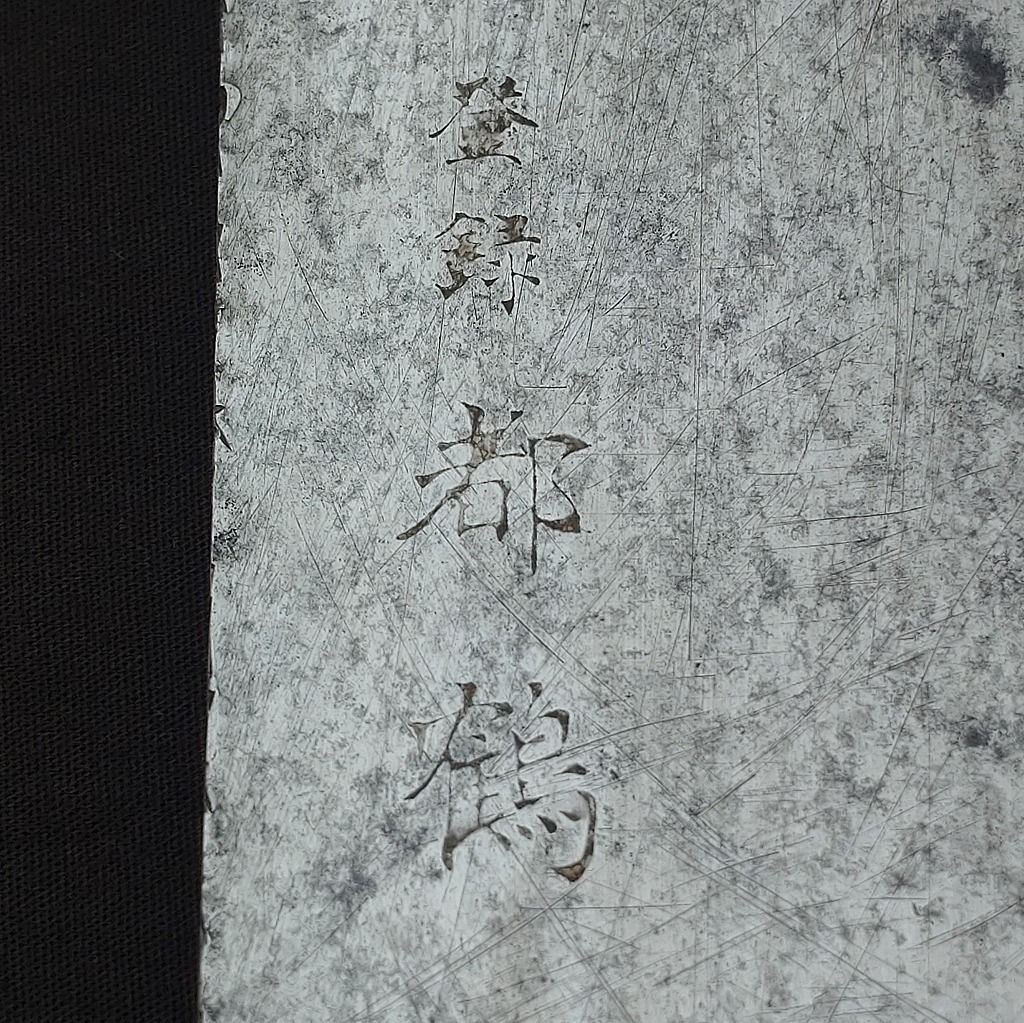 登録
都鶴